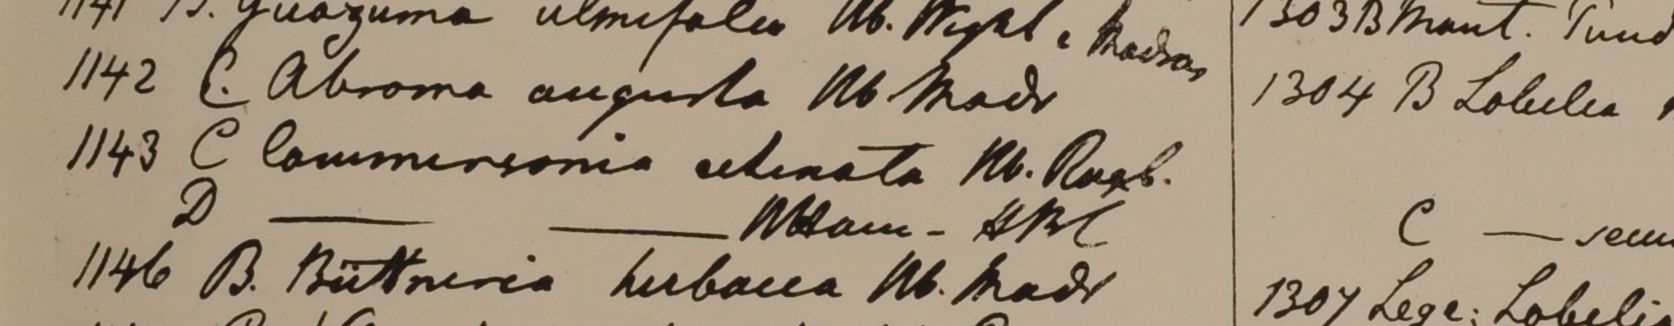 1141 B. Guazuma ulmifolia Hb. Wight e Madras
1142 C. Abroma augusta Hb Madr
1143 C Commersonia echinata Hb. Roxb.
D —— —— Hb Ham - HBC
1146 B. Büttneria herbacea Hb. Madr
1303 B Mont.
1304 B Lobelia
C —
1307 Lege: Lobelia